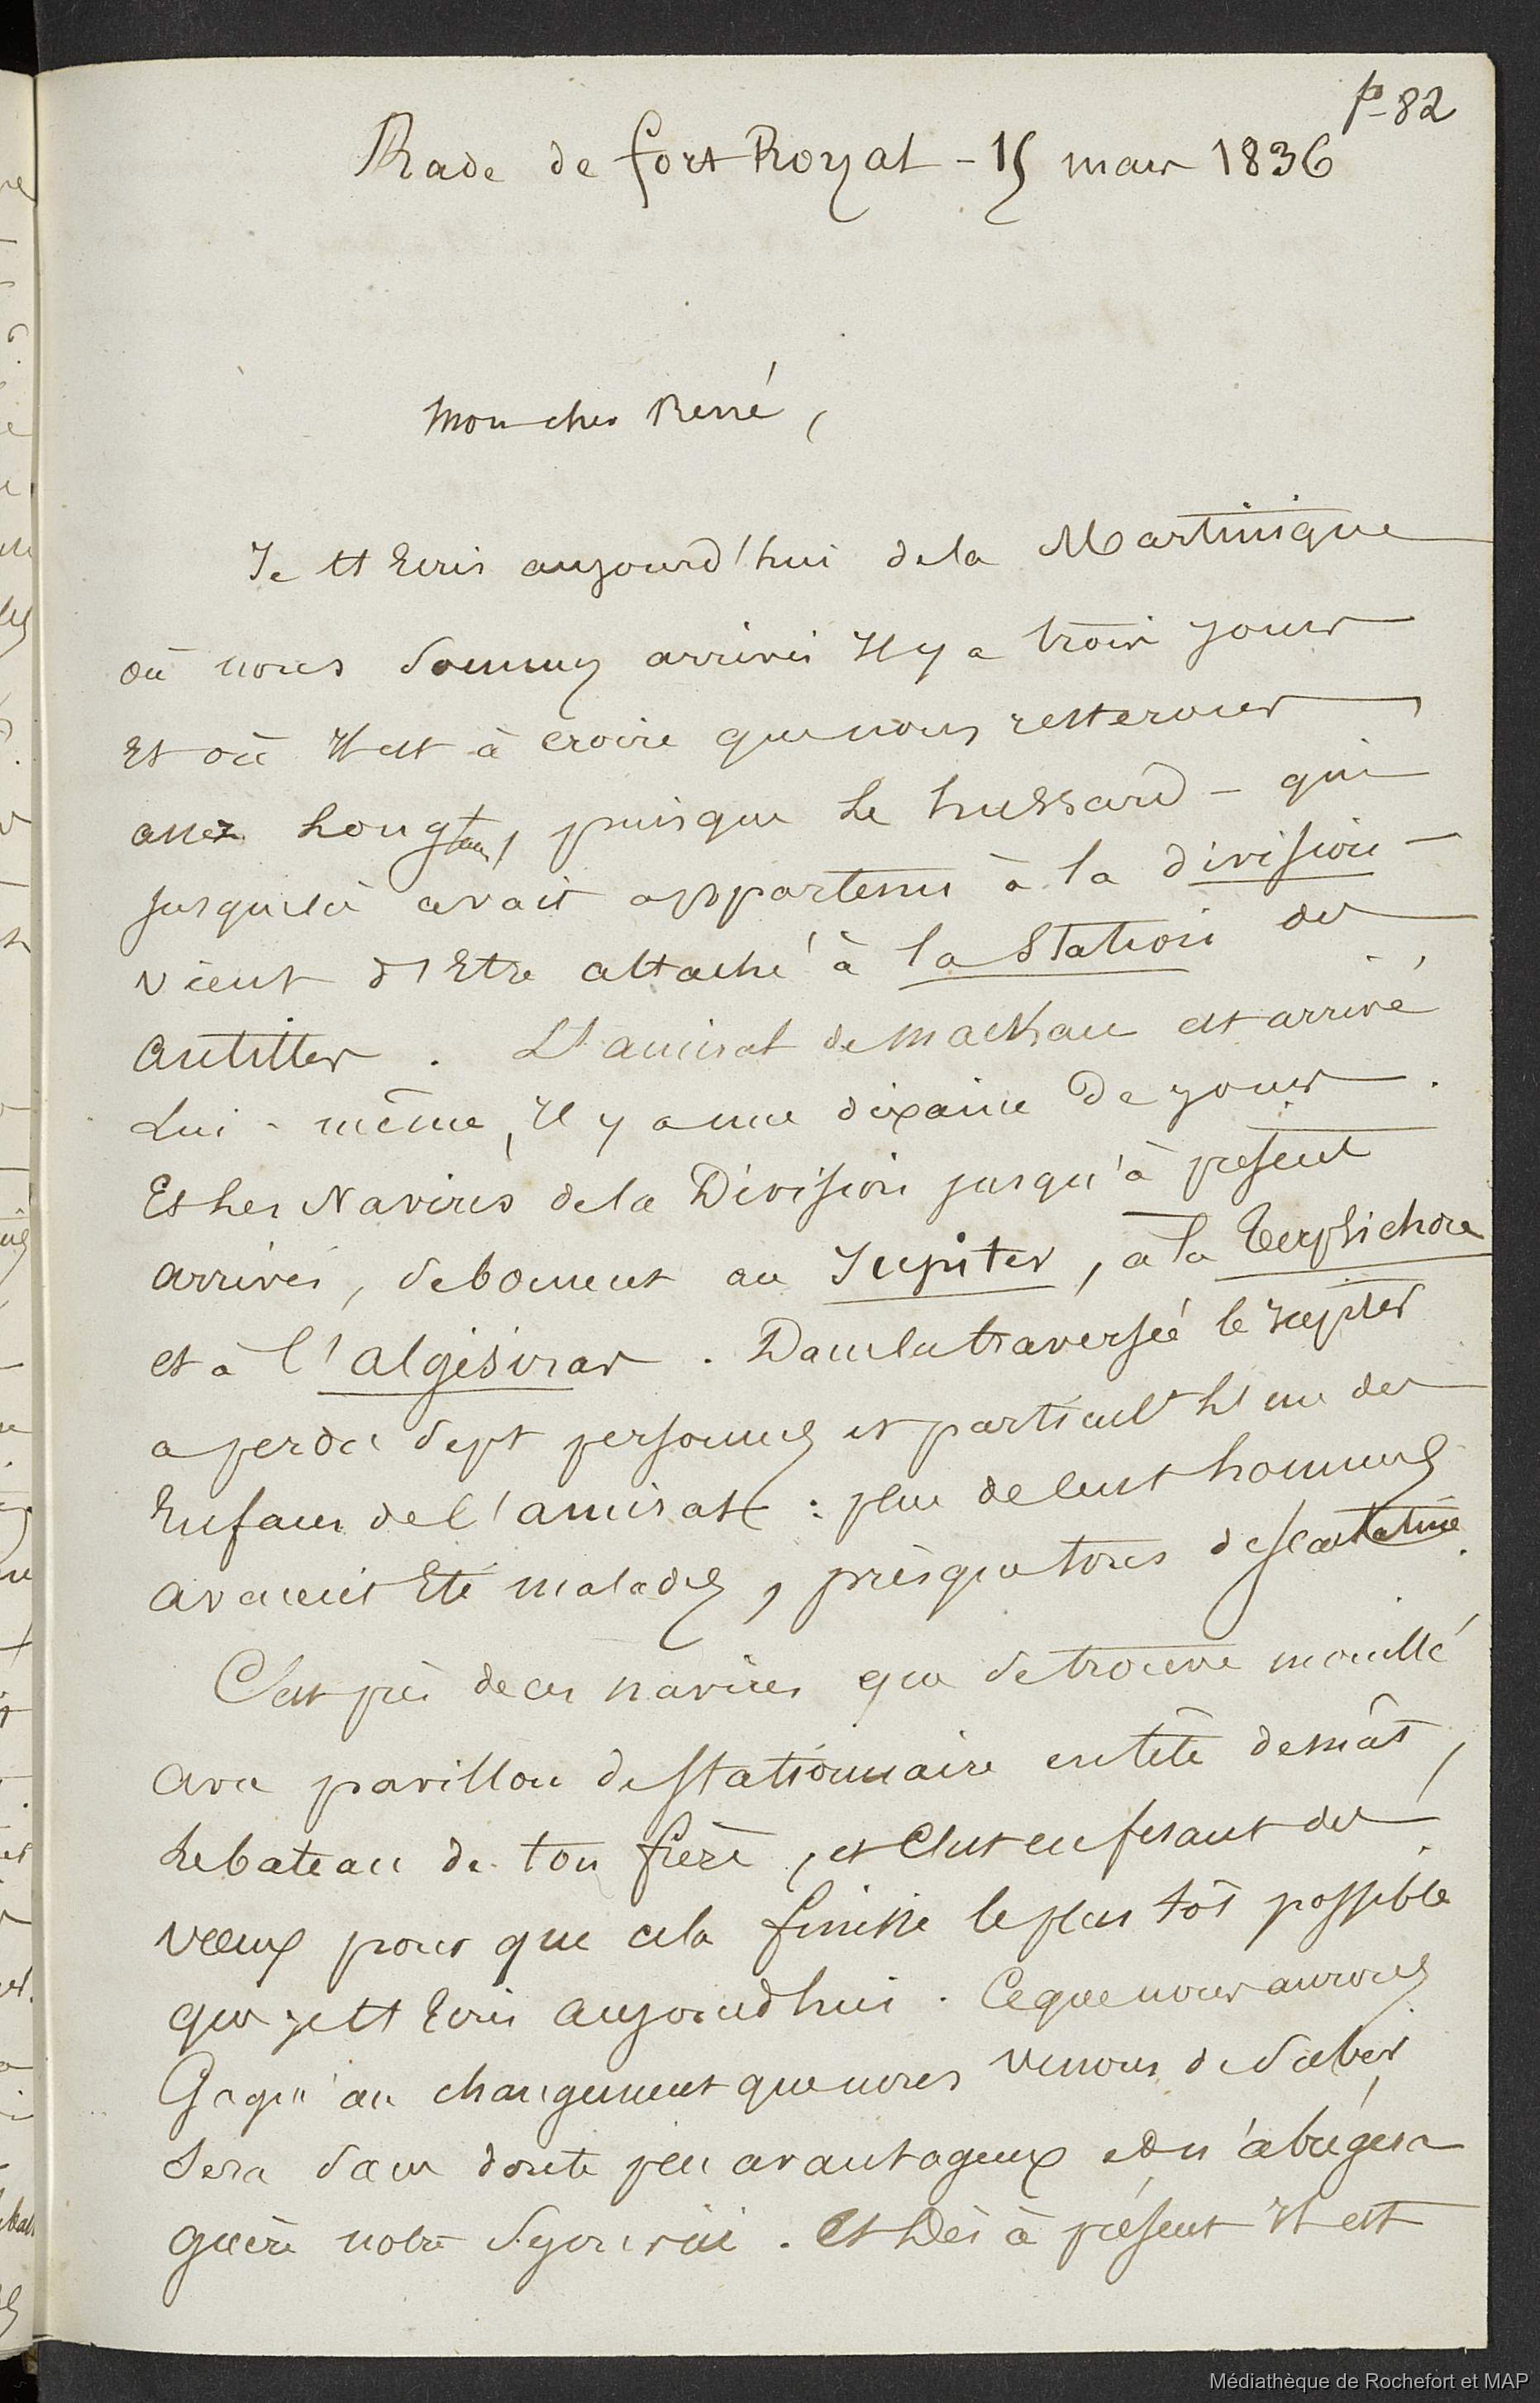 p-82
Rade de fort Royal - 15 mars 1836
Mon cher René,
Je tt Ecris aujourd'hui de la Martinique
où nous sommes arrivés Il y a trois jours
Et où Il est à croire que nous resterons
assez Longtems, puisque Le hussard - qui
jusque là avait appartenu à la division -
vient d'Etre attaché à la Station des
Antilles. L'amiral de Mackau est arrivé
Lui-même, Il y a une dixaine De jours.
Et Les Navires de la Division jusqu'à présent
arrivés, se bornent au Jupiter, à la Terpsichore
et à l'algésiras. Dans la traversée le Jupiter
a perdu sept personnes et particult L'un des
Enfans de l'amiral : plus de cent hommes
avaient Eté malades, presque tous de scarlatine.
C'est près de ces navires que se trouve mouillé
avec pavillon de stationnaire en tête de mât,
Le bateau de ton frère, et C'est en fesant des
vœux pour que cela finisse le plus tôt possible
que je tt Ecris aujourd'hui. Ce que nous aurons
Gagné au changement que nous venons de subir,
Sera sans doute peu avantageux et n'abrégera
guère notre séjour ici. Et Dès à présent Il est
Médiathèque de Rochefort et MAP